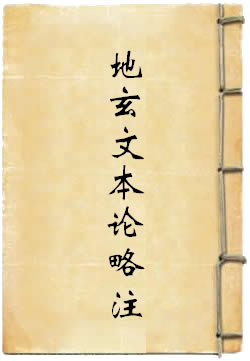 地玄文本论略注